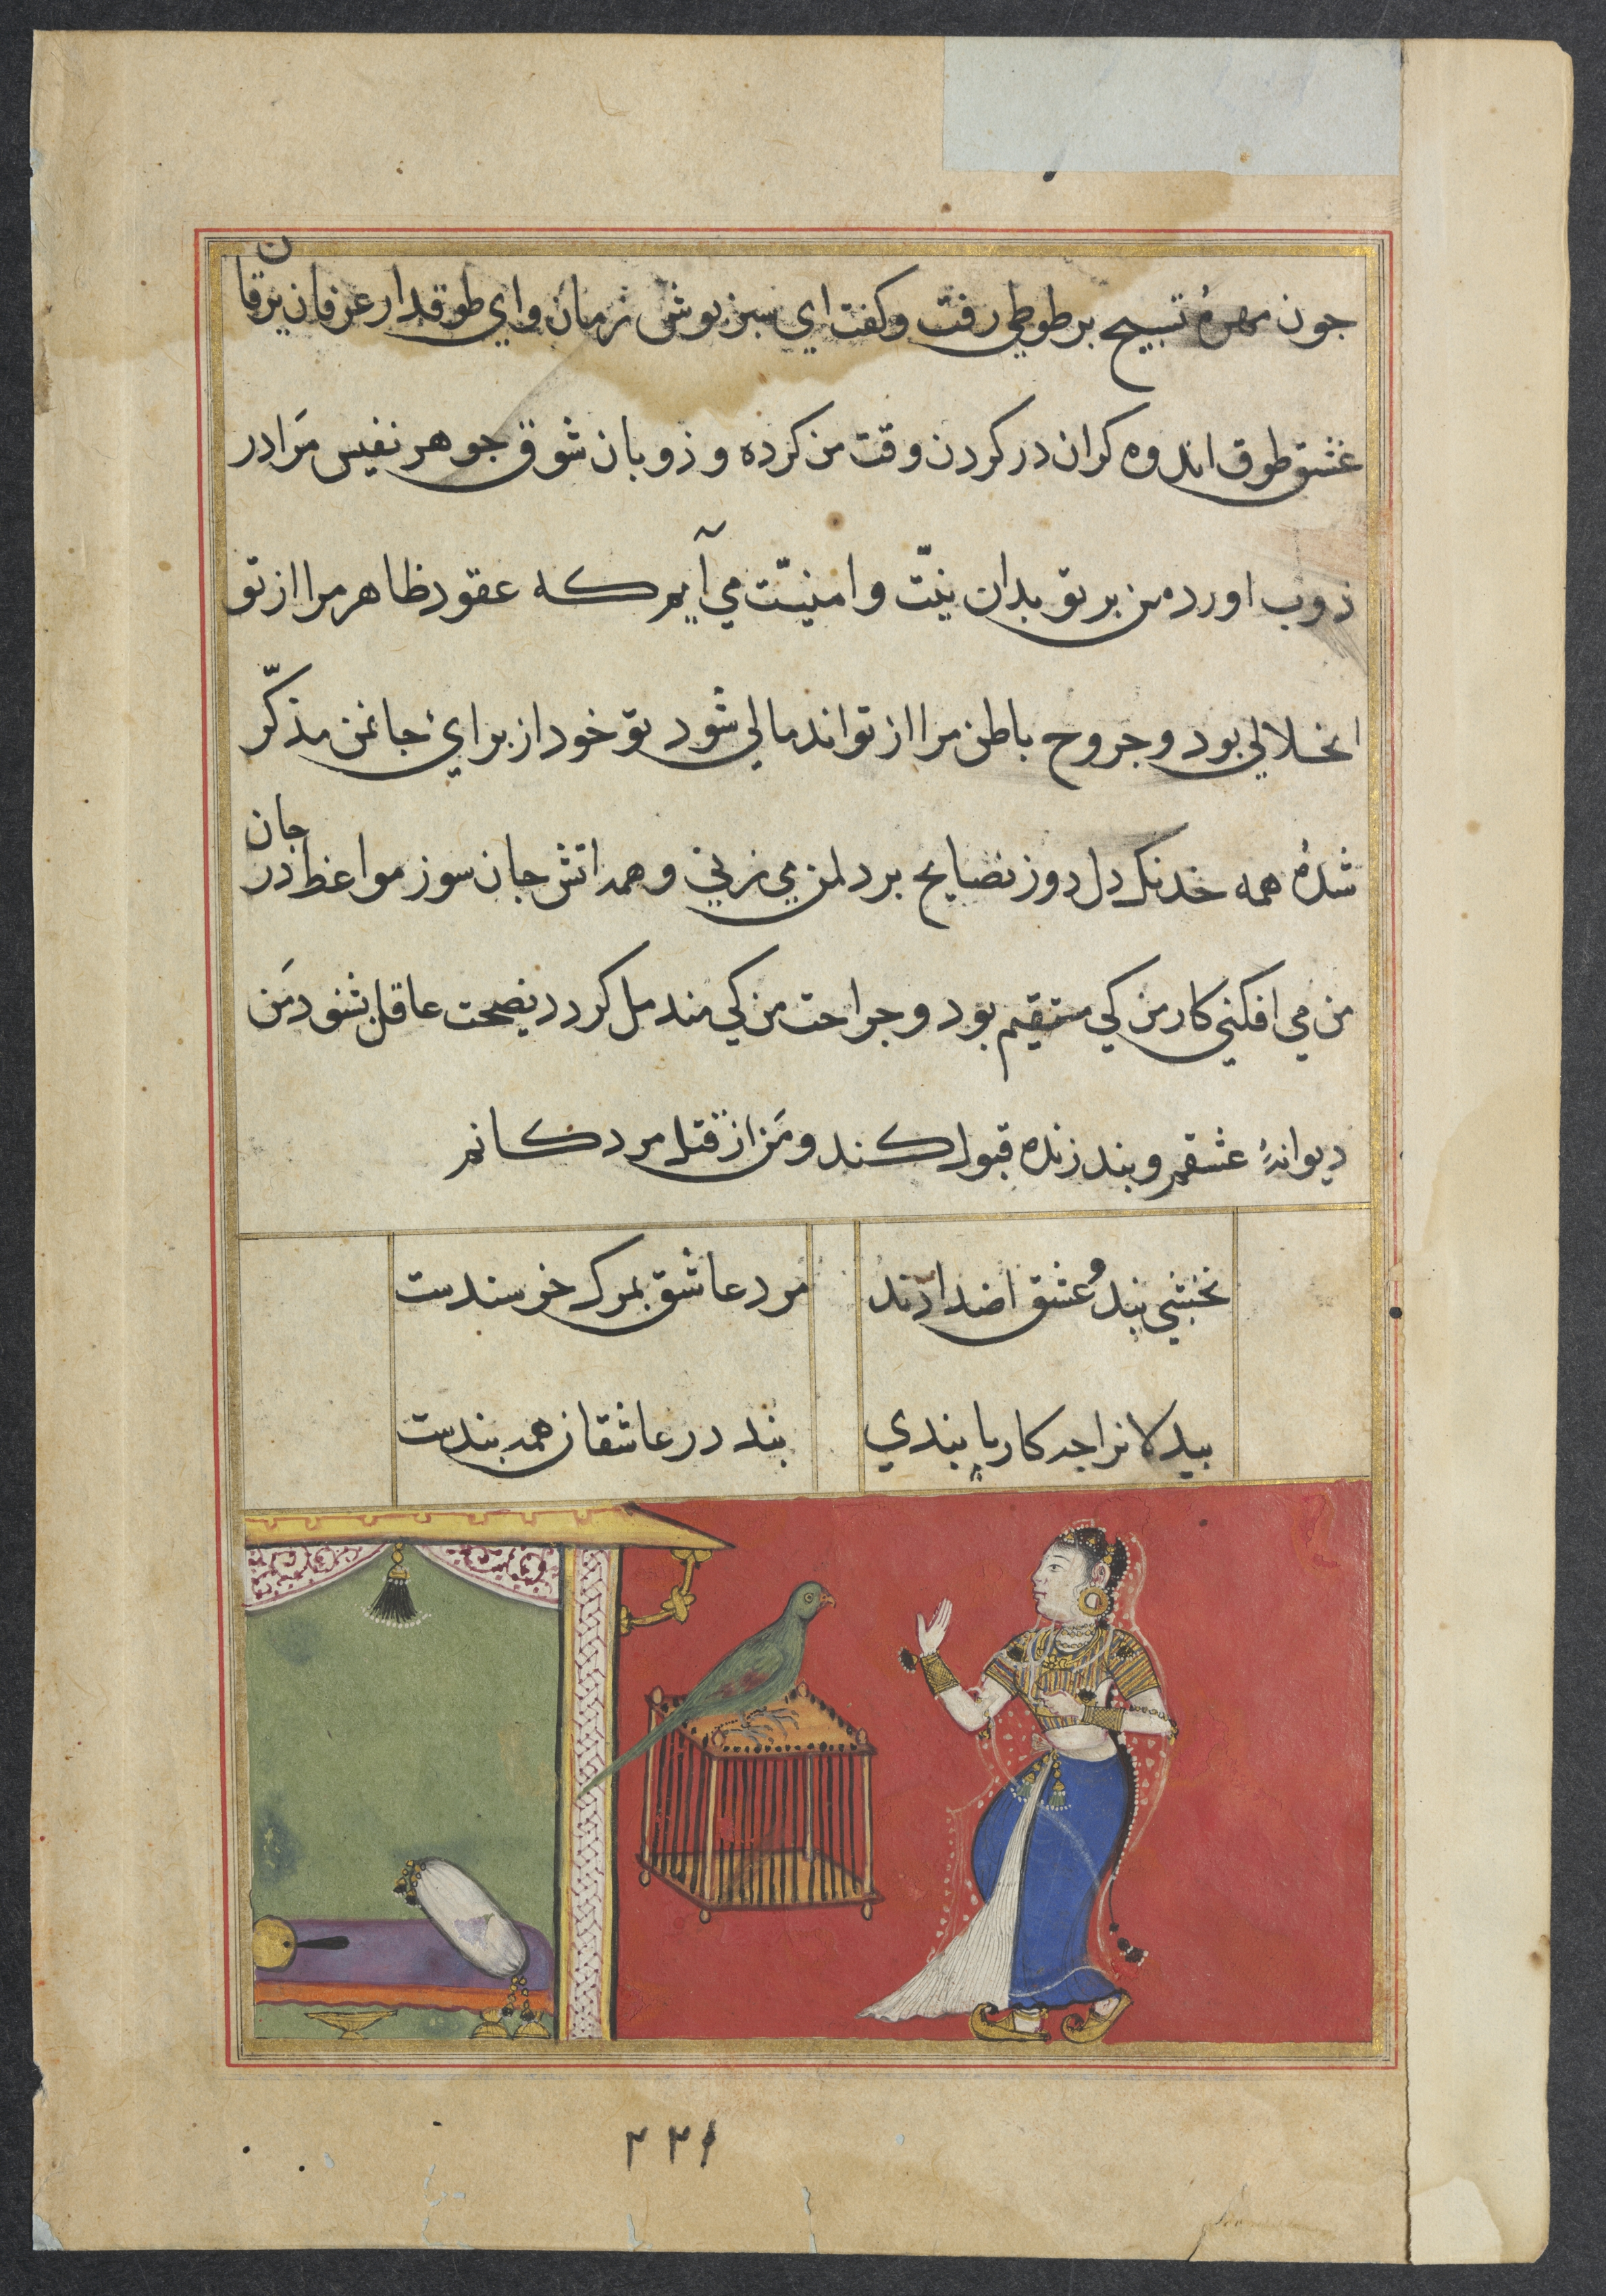 جون مهرهٔ تسبیح بر طوطی رفت و کفت ای سبز پوش زمان و ای طوقدار عرفان یرقان
عشق طوق اندوه کران در کردن وقت من کرده و ذوبان شوق جوهر نفیس مرا در
ذوب اورد من بر تو بدان نیّت و امنیّت می آیم که عقود ظاهر مرا از تو
انحلالی بود و جروح باطن مرا از تو اندمالی شود تو خود از برای جانمن مذکّر
شدهٔ همه خدنک دل دوز نصایح بر دلمن می زنی و همه اتش جان سوز مواعظ در جان
من می افکنی کار من کی مستقیم بود و جراحت من کی مندمل کردد نصیحت عاقل بشنود من
دیوانهٔ عشقم و پند زنده قبول کند و من از قتل مردکانم
نخشبی پند و عشق اضدادند مرد عاشق بمرک خرسندست
بیدلانرا چه کار با پندی پند در عاشقان همه بندست
۲۲۶